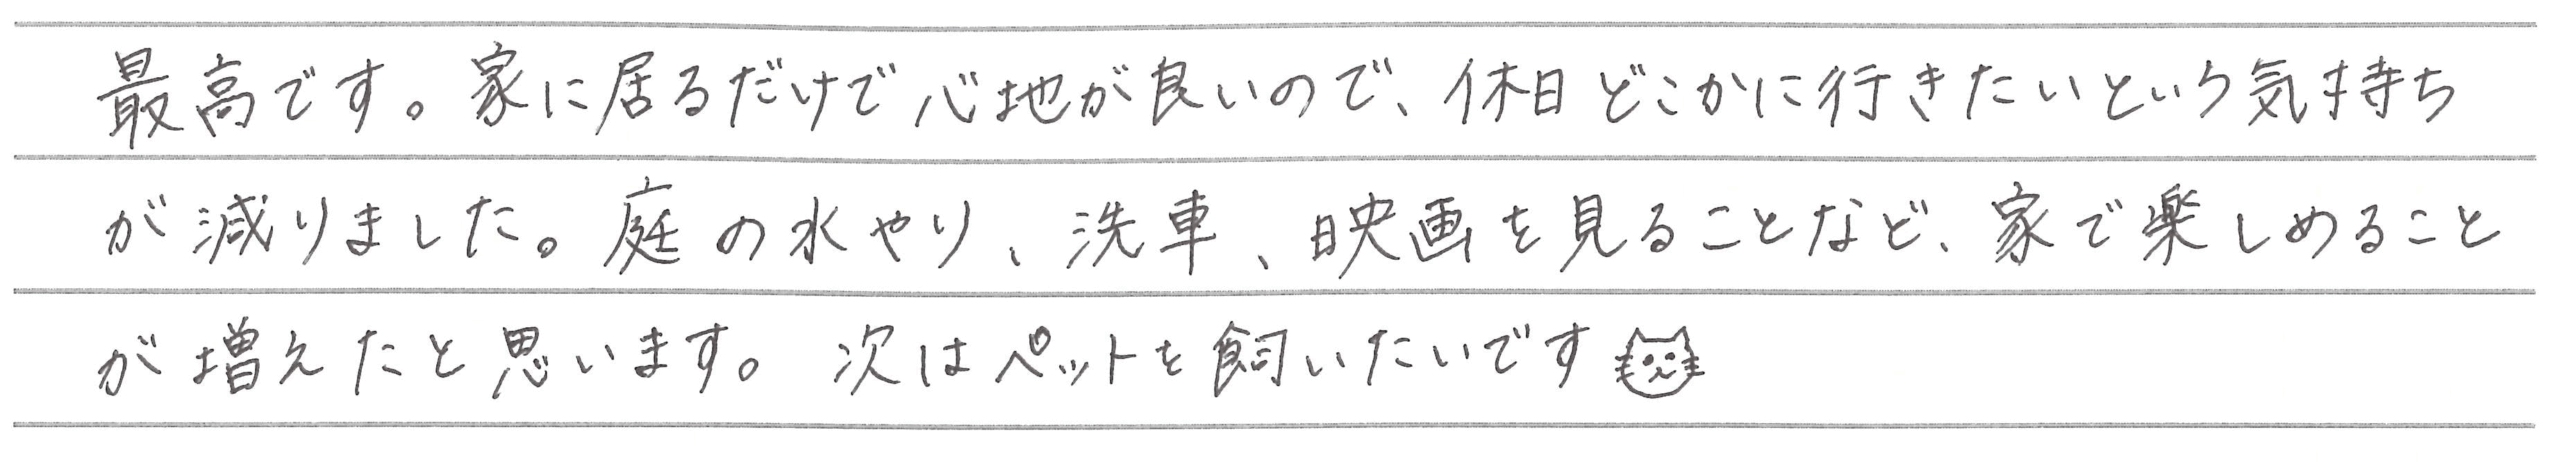 最高です。家に居るだけで心地が良いので、休日どこかに行きたいという気持ち
が減りました。庭の水やり、洗車、映画を見ることなど、家で楽しめること
が増えたと思います。次はペットを飼いたいです